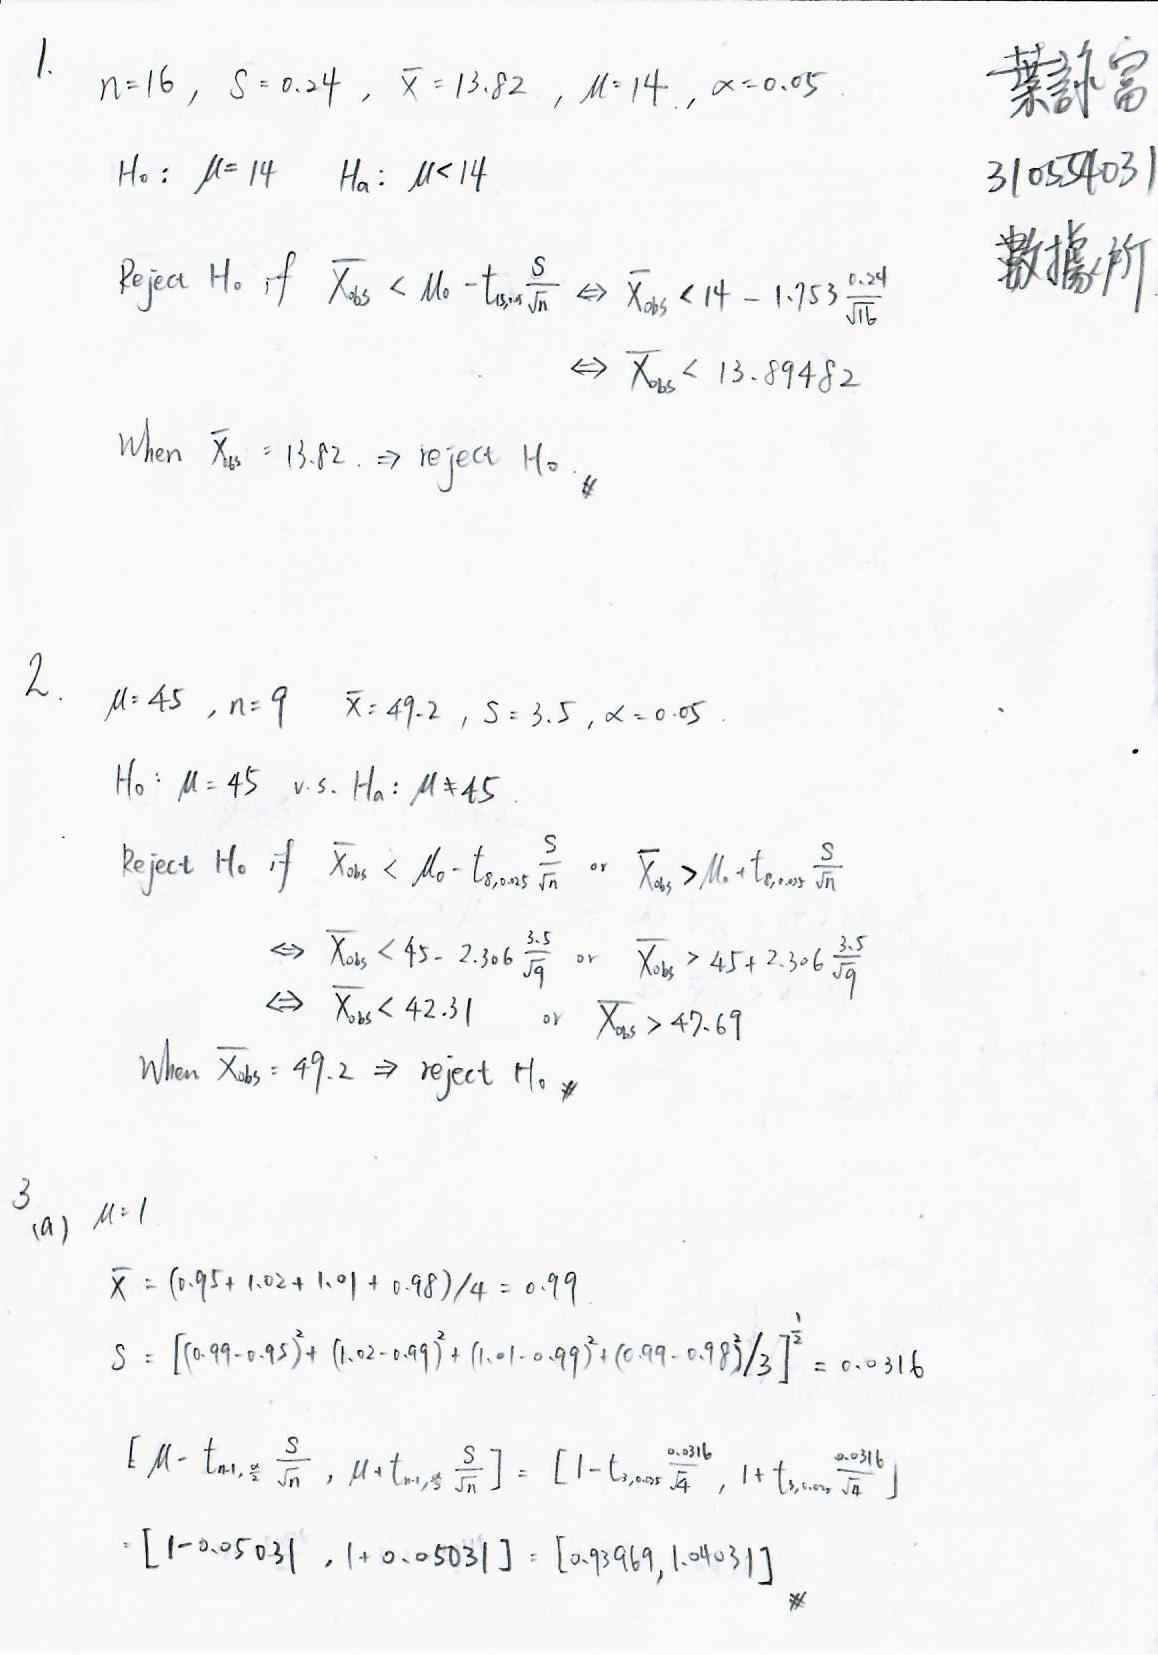 1.
n=16 , S=0.24 , x̄=13.82 , μ=14 , α=0.05
葉詠富
310554031
數據所
H₀: μ=14 Hₐ: μ<14
Reject H₀ if X̄obs < μ₀ - t15,0.05 S/√n ⇔ X̄obs < 14 - 1.753 0.24/√16
⇔ X̄obs < 13.89482
When X̄obs = 13.82. ⇒ reject H₀. #
2.
μ=45 , n=9 x̄=49.2 , S=3.5 , α=0.05
H₀: μ=45 v.s. Hₐ: μ≠45
Reject H₀ if X̄obs < μ₀ - t8,0.025 S/√n or X̄obs > μ₀ + t8,0.025 S/√n
⇔ X̄obs < 45 - 2.306 3.5/√9 or X̄obs > 45 + 2.306 3.5/√9
⇔ X̄obs < 42.31 or X̄obs > 47.69
When X̄obs = 49.2 ⇒ reject H₀ #
3
(a) μ=1
x̄ = (0.95+1.02+1.01+0.98)/4 = 0.99
S = [(0.99-0.95)²+(1.02-0.99)²+(1.01-0.99)²+(0.99-0.98)²/3]^½ = 0.0316
[μ - tn-1,α/2 S/√n , μ + tn-1,α/2 S/√n] = [1 - t3,0.025 0.0316/√4 , 1 + t3,0.025 0.0316/√4]
= [1-0.05031 , 1+0.05031] = [0.93969, 1.04031] #